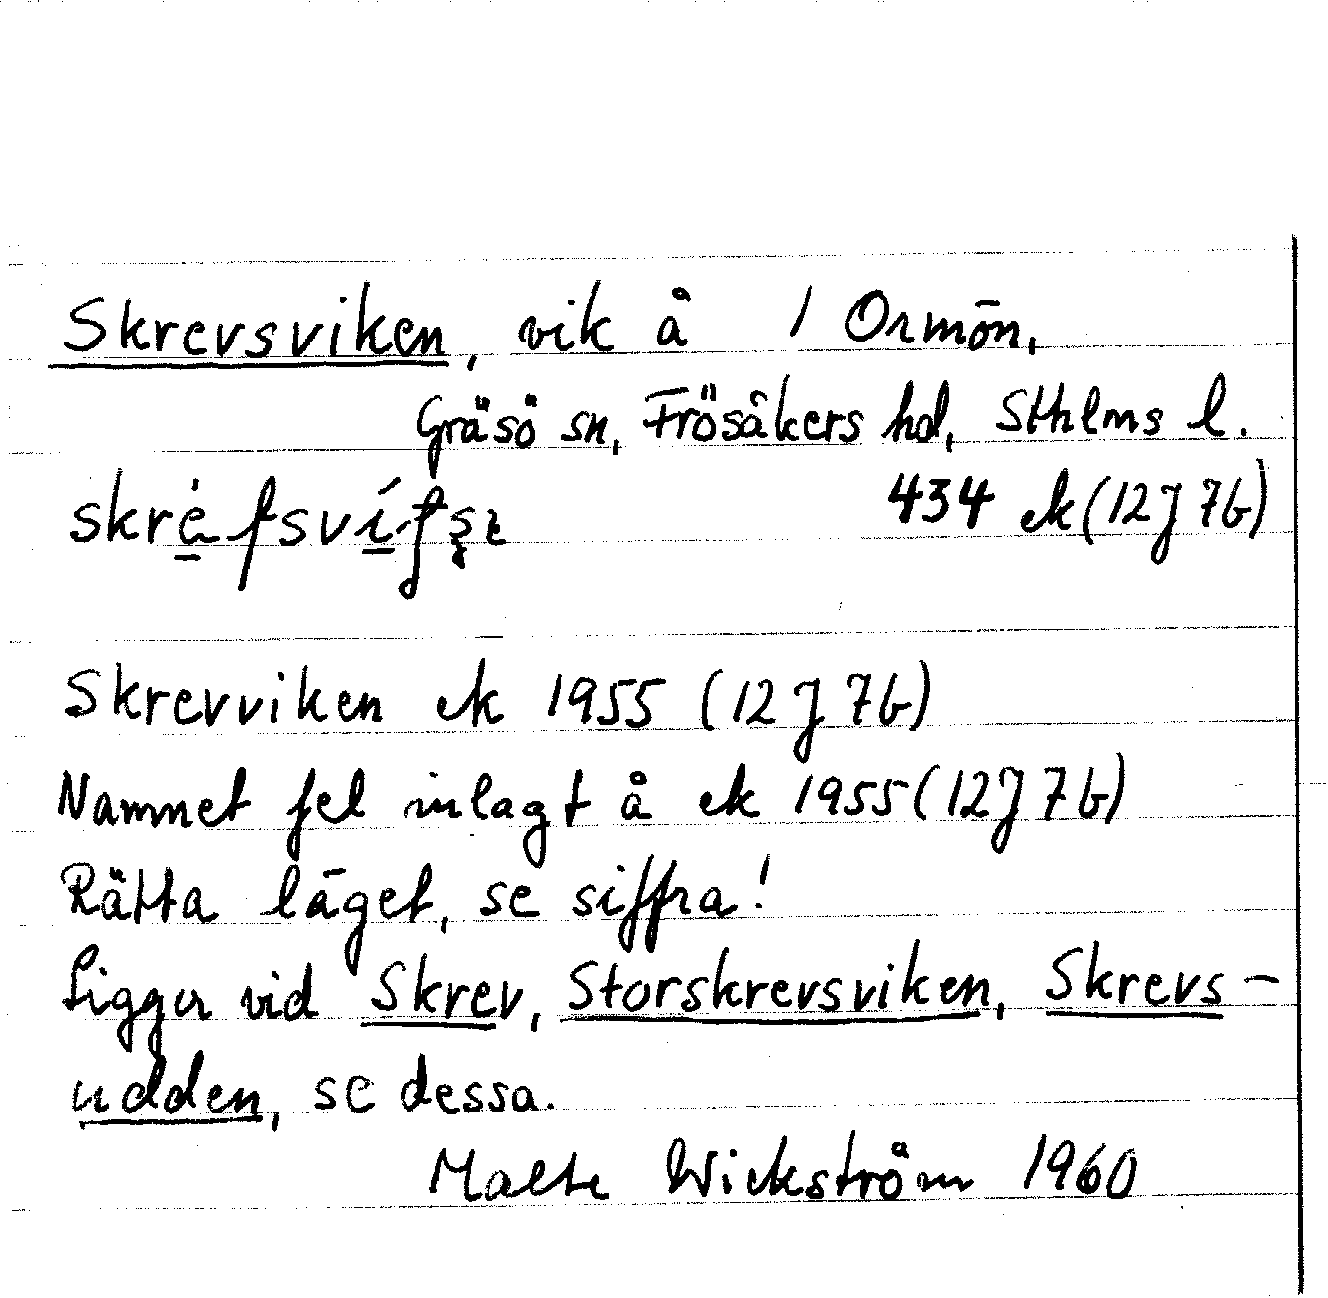 Skrevsviken, vik å / Ormön,
Gräsö sn, Frösåkers hd, Sthlms l.
434 ek (12J 7b)
Skrevviken ek 1955 (12J 7b)
Namnet fel inlagt å ek 1955 (12J 7b)
Rätta läget, se siffra!
Ligger vid Skrev, Storskrevsviken, Skrevs-
udden, se dessa.
Malte Wickström 1960